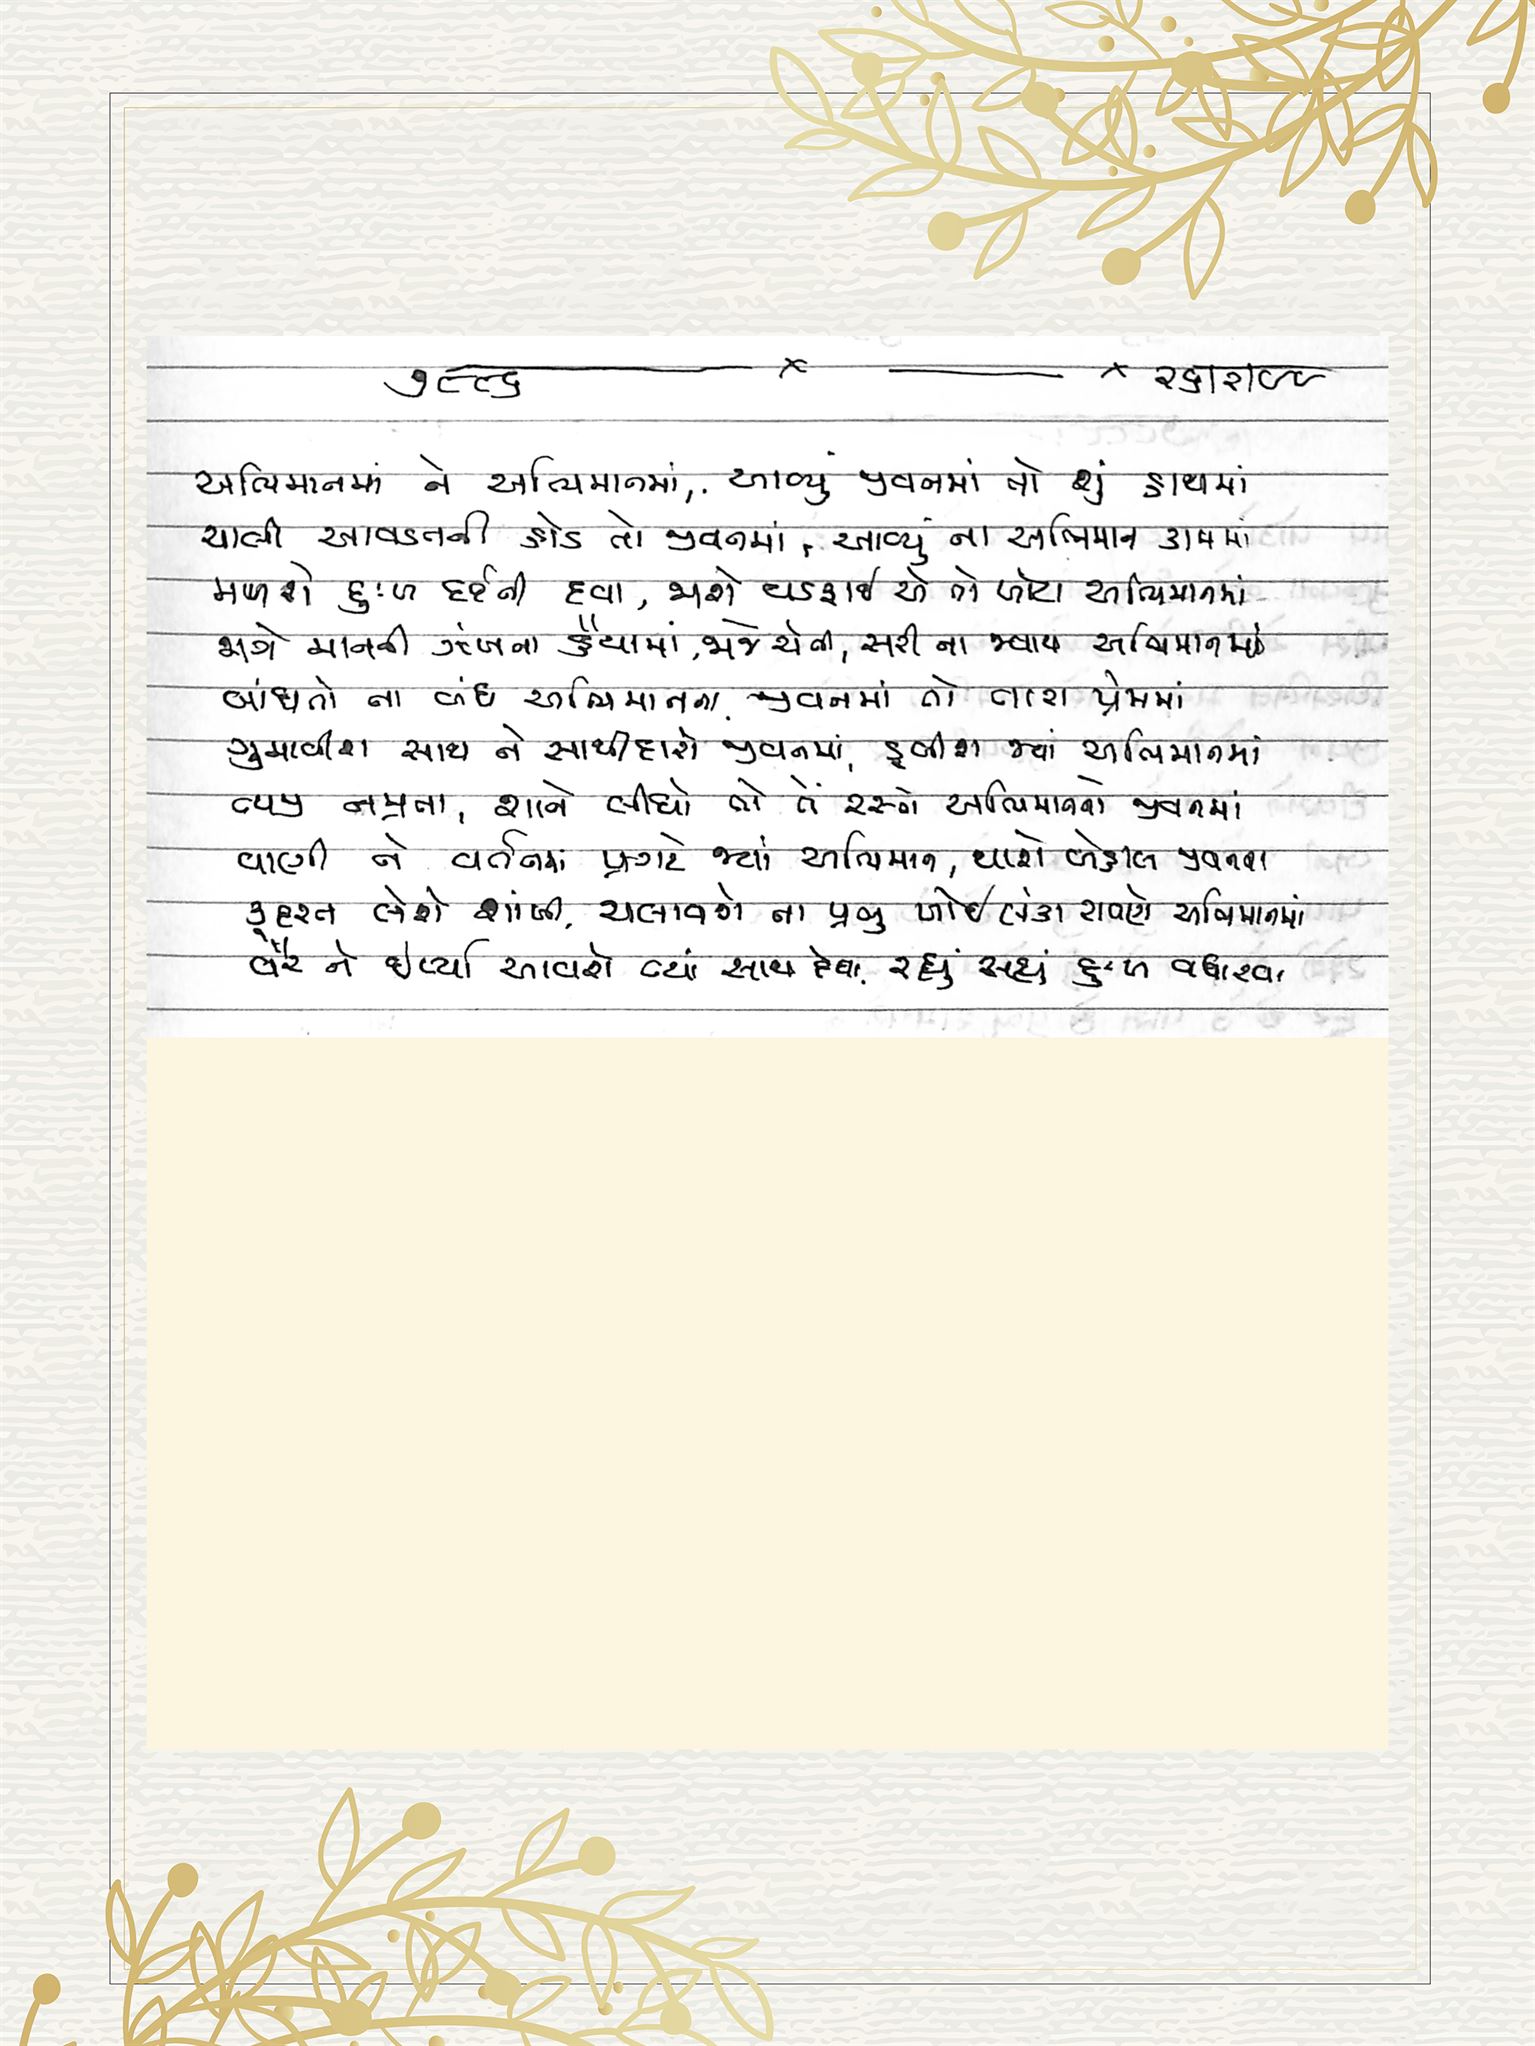 ૭૯૯૬ × × ૨૬।૩।૯૯
અભિમાનમાં ને અભિમાનમાં, આવ્યું જીવનમાં તો શું હાથમાં
ચાલી આવડતની હોડ તો જીવનમાં, આવ્યું ના અભિમાન કામમાં
મળશે દુઃખ દર્દની દવા, જાશે થડકાઈ એ તો ખોટા અભિમાનમાં
જાગે માનની ઝંખના હૈયામાં, જોજે એની, સરી ના જવાય અભિમાનમાં
બાંધતો ના બંધ અભિમાનના જીવનમાં તો તારા પ્રેમમાં
ગુમાવીશ સાથ ને સાથીદારો જીવનમાં, ડૂબીશ જ્યાં અભિમાનમાં
ત્યજી નમ્રતા, શાને લીધો તો તેં રસ્તો અભિમાનનો જીવનમાં
વાણી ને વર્તનમાં પ્રગટે જ્યાં અભિમાન, થાશે બેહાલ જીવનના
કુદરત લેશે શોધી, ચલાવશે ના પ્રભુ ખોઈ લંકા રાવણે અભિમાનમાં
વૈર ને ઈર્ષ્યા આવશે ત્યાં સાથ દેવા, રહ્યું સહ્યું દુઃખ વધારવા